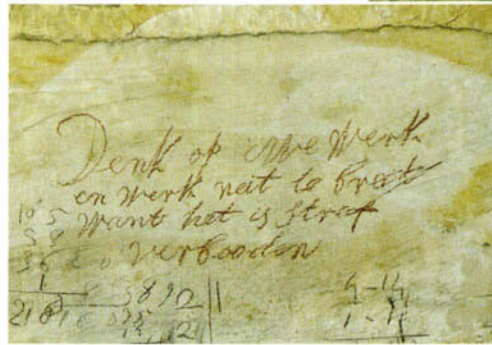 Denk op uwe Werk
en Werk niet te breet
Want het is Straf
verbooden
10 5
21
5892
4-14